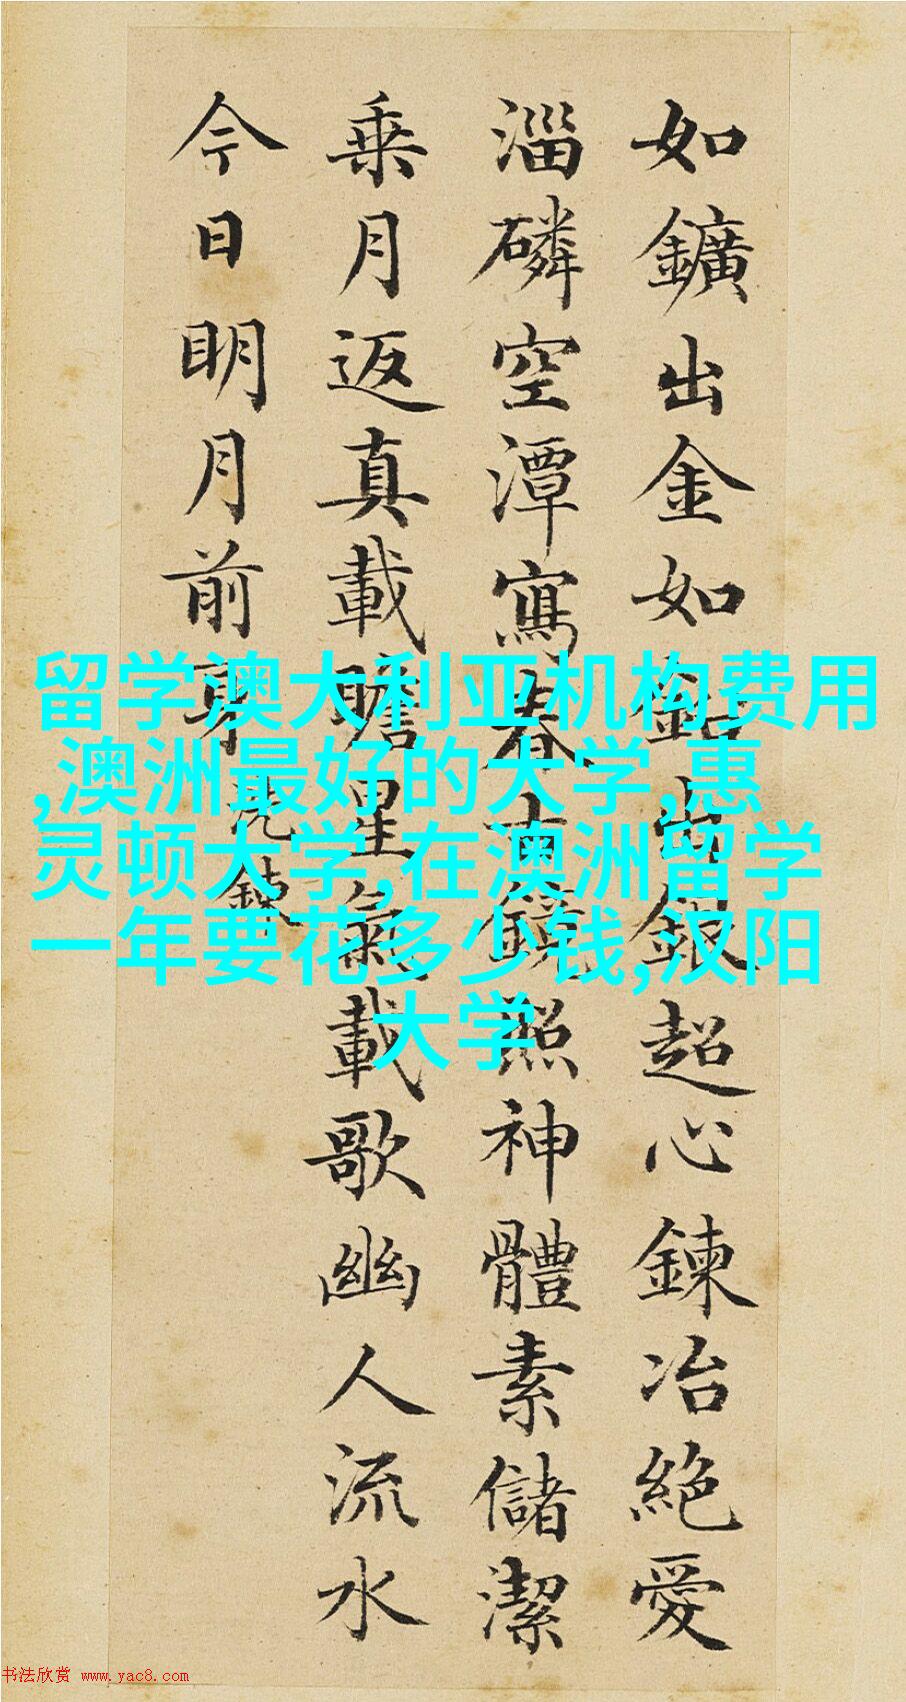 如鑛出金如鉛出銀超心鍊冶絕愛
淄磷空潭寫春古鏡照神體素儲潔
乘月返真載瞻星氣載歌幽人流水
今日明月前身
洗鍊
留学澳大利亚机构费用
,澳洲最好的大学,惠
灵顿大学,在澳洲留学
一年要花多少钱,汉阳
大学
书法欣赏 www.yac8.com